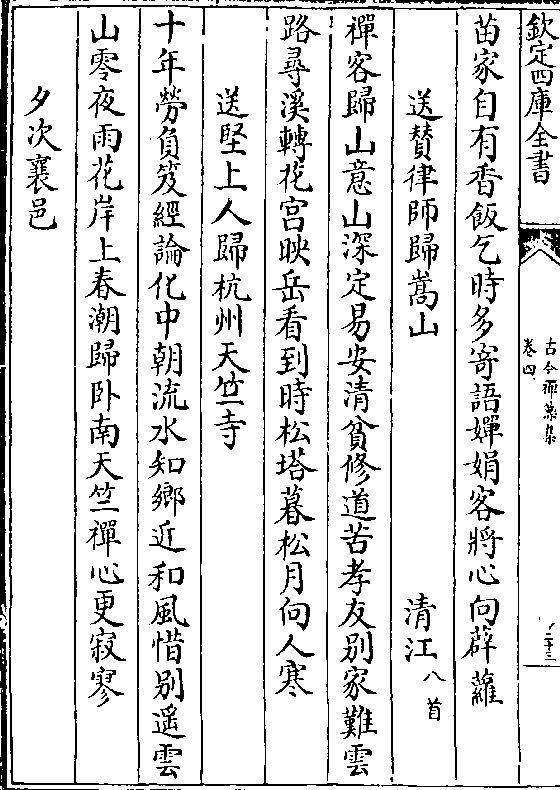 欽定四庫全書
古今禪藻集
卷四
苗家自有香飯乞時多寄語嬋娟客將心向薜蘿
送賛律師歸嵩山
清江八首
禪客歸山意山深定易安清貧修道苦孝友別家難雲
路尋溪轉花宫映岳看到時松塔暮松月向人寒
送堅上人歸杭州天竺寺
十年勞負笈經論化中朝流水知鄉近和風惜別遥雲
山零夜雨花岸上春潮歸卧南天竺禪心更寂寥
夕次襄邑